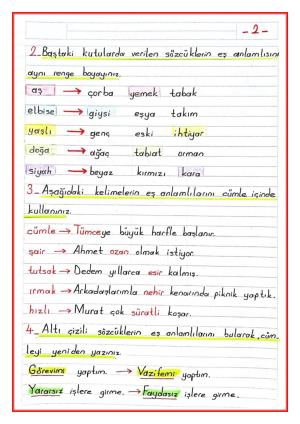 -2-
2_Baştaki kutularda verilen sözcüklerin eş anlamlısını
aynı renge boyayınız.
aş → çorba yemek tabak
elbise → giysi eşya takım
yaşlı → genç eski ihtiyar
doğa → ağaç tabiat orman
siyah → beyaz kırmızı kara
3_Aşağıdaki kelimelerin eş anlamlılarını cümle içinde
kullanınız.
cümle → Tümceye büyük harfle başlanır.
şair → Ahmet ozan olmak istiyor.
tutsak → Dedem yıllarca esir kalmış.
ırmak → Arkadaşlarımla nehir kenarında piknik yaptık.
hızlı → Murat çok süratli koşar.
4_Altı çizili sözcüklerin eş anlamlılarını bularak,cüm_
leyi yeniden yazınız.
Görevimi yaptım. → Vazifemi yaptım.
Yararsız işlere girme. → Faydasız işlere girme.